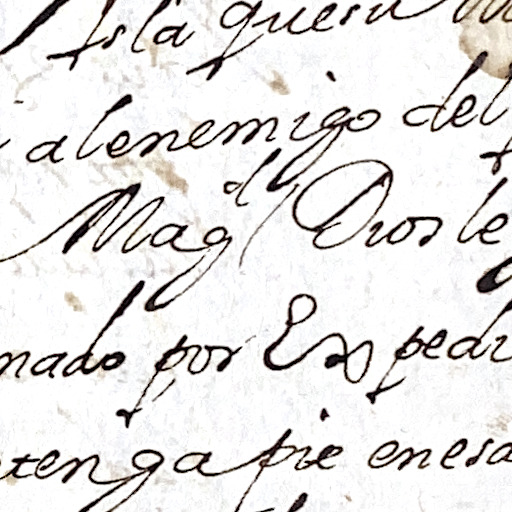 Isla que su
al enemigo del
Magd Dios le
nado por Exped
tenga pie en esa